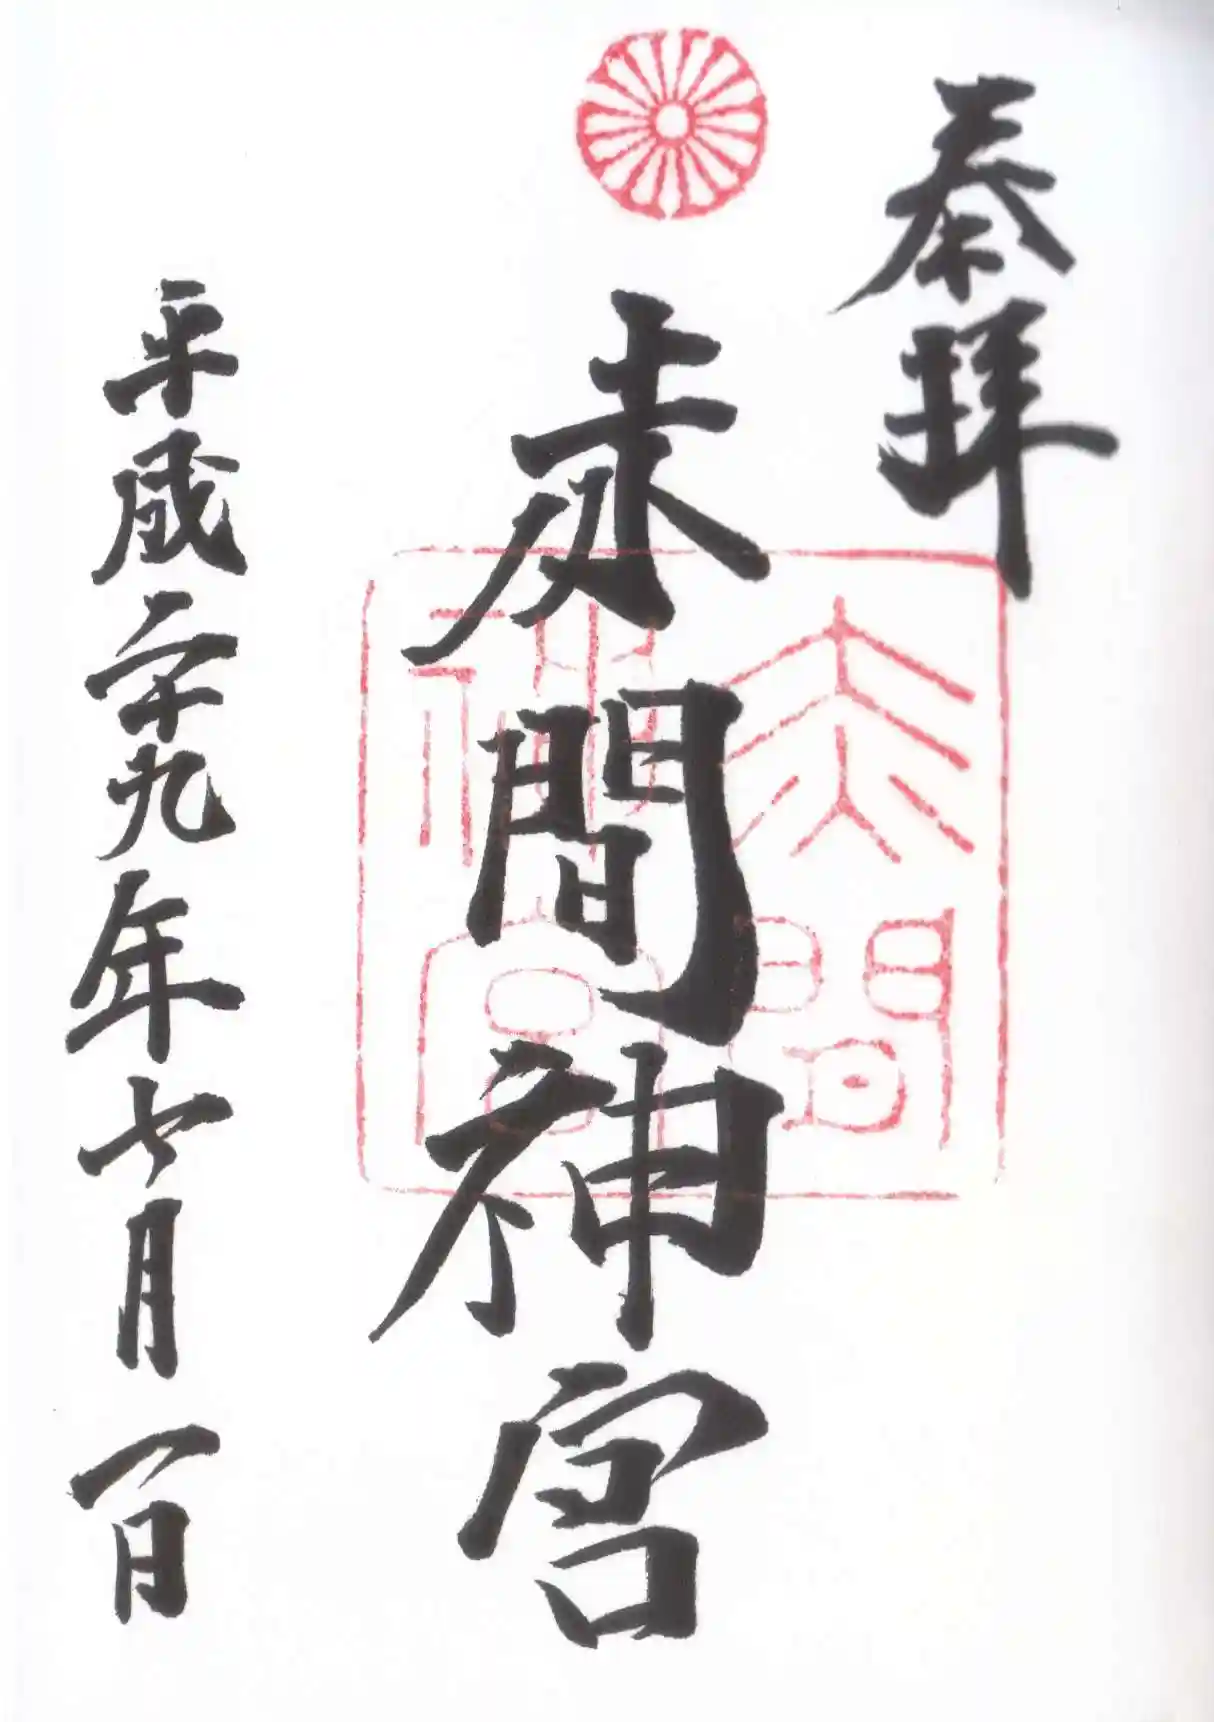 奉拝
赤間神宮
赤間
神宮
平成二十九年七月一日